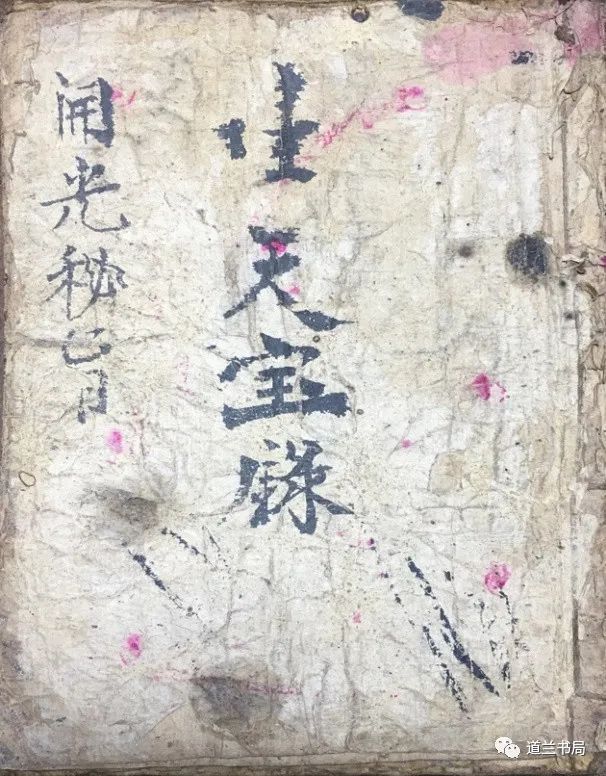 生天宝錄
開光秘旨
道兰书局